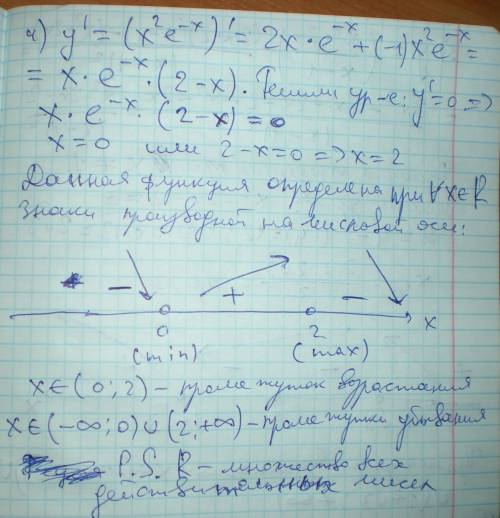 ч) y' = (x²e⁻ˣ)' = 2x·e⁻ˣ + (-1)x²e⁻ˣ =
= x·e⁻ˣ·(2-x). Решим ур-е: y'=0 =>
x·e⁻ˣ·(2-x)=0
x=0 или 2-x=0 => x=2
Данная функция определена при ∀x∈R
Знаки производной на числовой оси:
- + -
0 2 x
(min) (max)
x∈(0;2) - промежуток возрастания
x∈(-∞;0)∪(2;+∞) - промежутки убывания
P.S. R - множество всех
действительных чисел